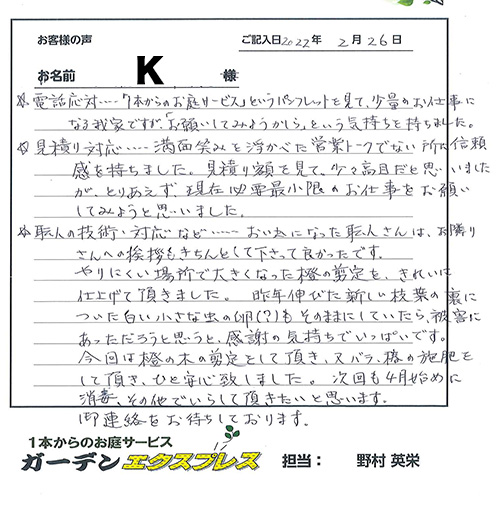 お客様の声
ご記入日2022年 2月26日
お名前 K 様
☆電話応対‥‥「1本からのお庭サービス」というパンフレットを見て、少量のお仕事に
なる我家ですが、「お願いしてみようかしら」という気持ちを持ちました。
☆見積り対応‥‥満面笑みを浮かべた営業トークでない所に信頼
感を持ちました。見積り額を見て、少々高目だと思いました
が、とりあえず、現在必要最小限のお仕事をお願い
してみようと思いました。
☆職人の技術・対応など‥‥おいでになった職人さんは、お隣り
さんへの挨拶もきちんとして下さって良かったです。
やりにくい場所で大きくなった橙の剪定を、きれいに
仕上げて頂きました。昨年伸びた新しい枝葉の裏に
ついた白い小さな虫の卵(?)もそのままにしていたら、被害に
あっただろうと思うと、感謝の気持ちでいっぱいです。
今回は橙の木の剪定として頂き、又バラ、椿の施肥を
して頂き、ひと安心致しました。次回も4月始めに
消毒、その他でいらして頂きたいと思います。
御連絡をお待ちしております。
1本からのお庭サービス
ガーデンエクスプレス 担当: 野村 英栄